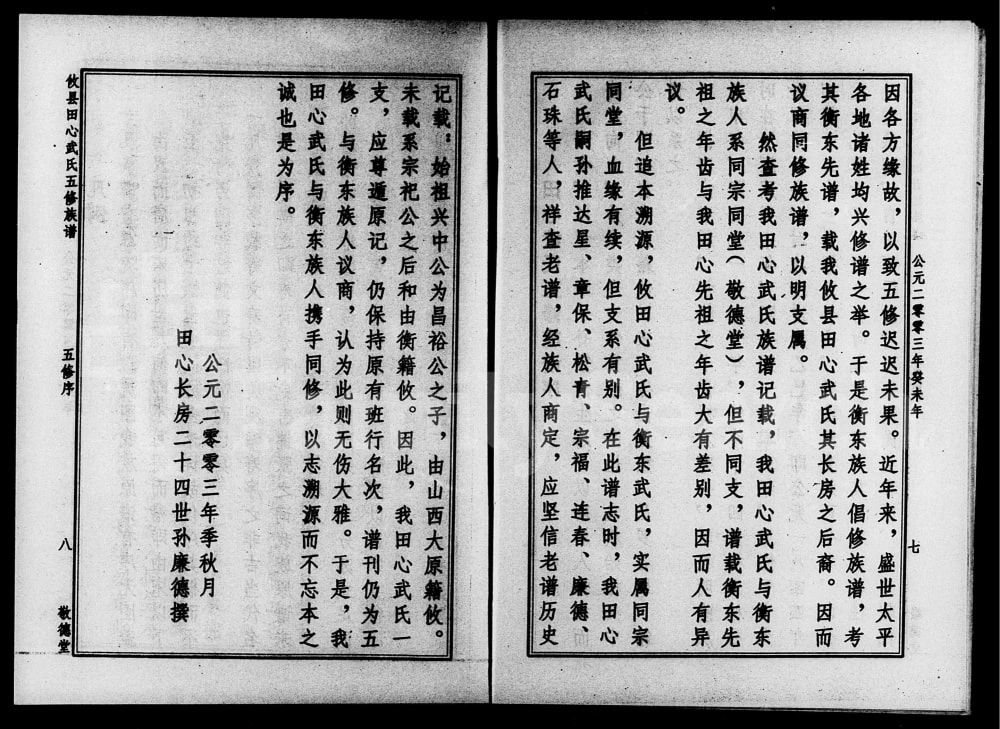 公元二零零三年癸未年
七
因各方缘故，以致五修迟迟未果。近年来，盛世太平
各地诸姓均兴修谱之举。于是衡东族人倡修族谱，考
其衡东先谱，载我攸县田心武氏其长房之后裔。因而
议商同修族谱，以明支属。
然查考我田心武氏族谱记载，我田心武氏与衡东
族人系同宗同堂（敬德堂），但不同支，谱载衡东先
祖之年齿与我田心先祖之年齿大有差别，因而人有异
议。
但追本溯源，攸田心武氏与衡东武氏，实属同宗
同堂，血缘有续，但支系有别。在此谱志时，我田心
武氏嗣孙推达星、章保、松青、宗福、连春、廉德、
石珠等人，祥查老谱，经族人商定，应坚信老谱历史
记载：始祖兴中公为昌裕公之子，由山西大原籍攸。
未载系宗祀公之后和由衡籍攸。因此，我田心武氏一
支，应尊遁原记，仍保持原有班行名次，谱刊仍为五
修。与衡东族人议商，认为此则无伤大雅。于是，我
田心武氏与衡东族人携手同修，以志溯源而不忘本之
诚也是为序。
公元二零零三年季秋月
田心长房二十四世孙廉德撰
攸县田心武氏五修族谱
五修序
八
敬德堂